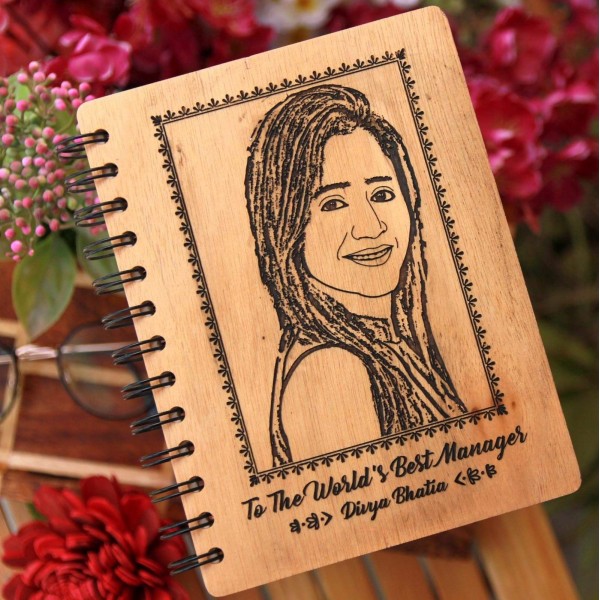 To The World's Best Manager
Divya Bhatia